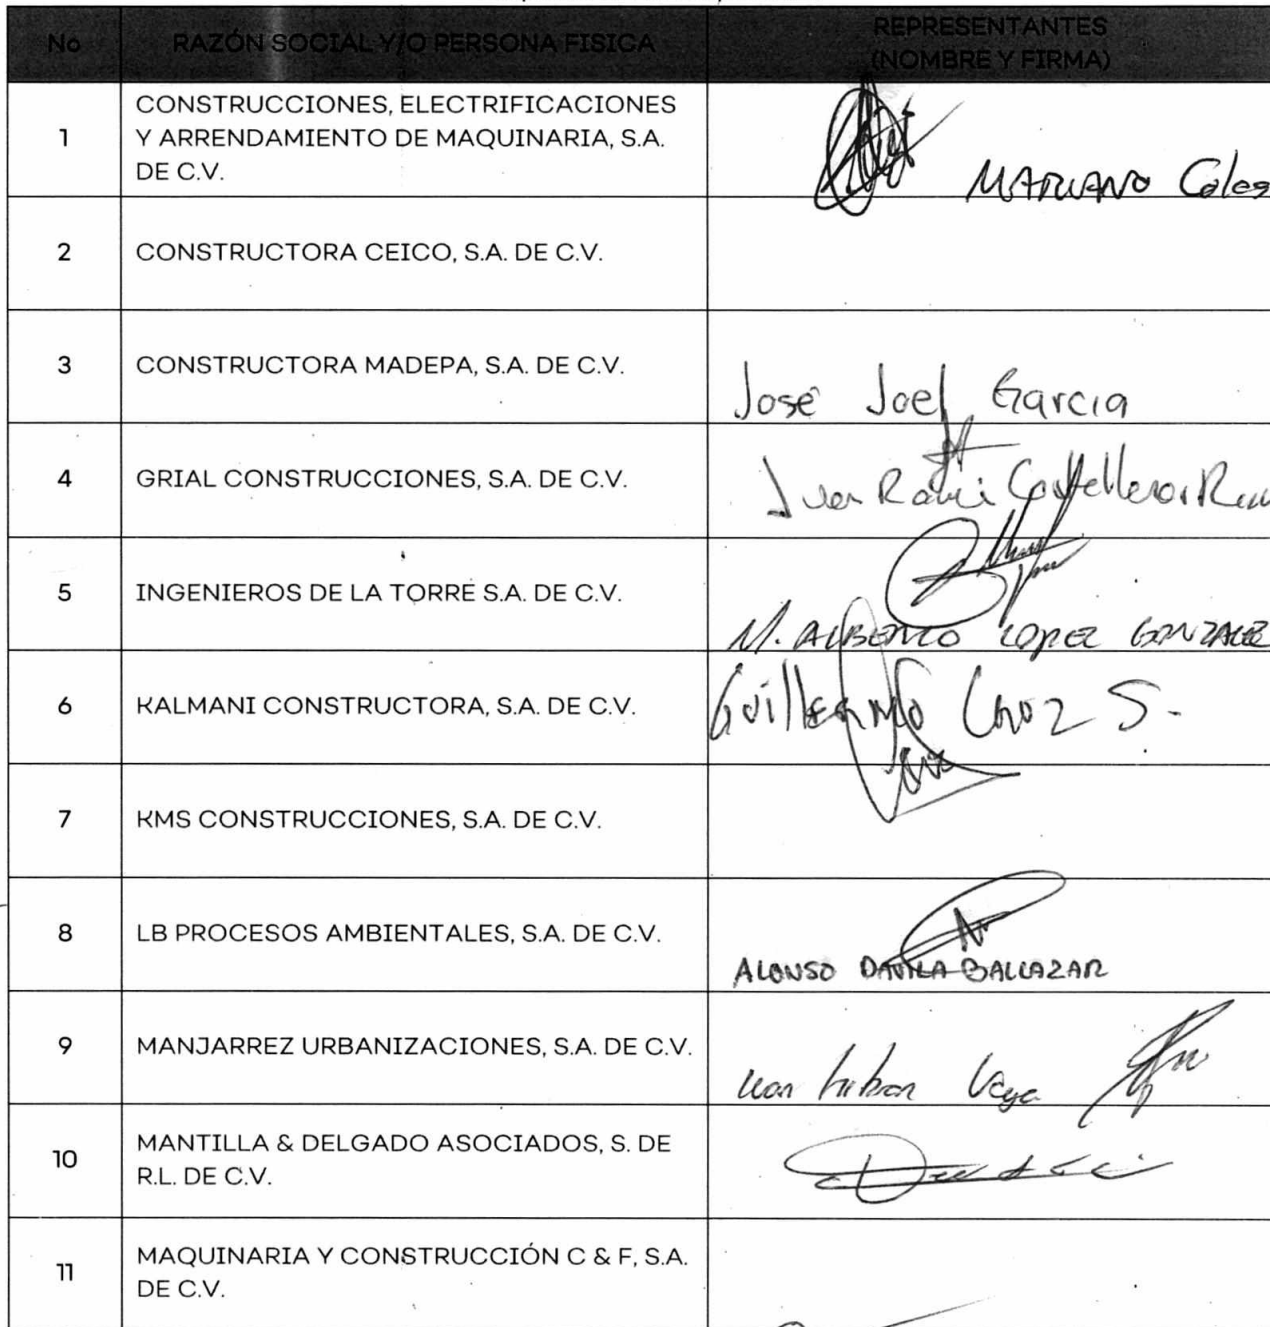 No
RAZÓN SOCIAL Y/O PERSONA FISICA
REPRESENTANTES
(NOMBRE Y FIRMA)
1
CONSTRUCCIONES, ELECTRIFICACIONES
Y ARRENDAMIENTO DE MAQUINARIA, S.A.
DE C.V.
MARIANO
2
CONSTRUCTORA CEICO, S.A. DE C.V.
3
CONSTRUCTORA MADEPA, S.A. DE C.V.
José Joel Garcia
4
GRIAL CONSTRUCCIONES, S.A. DE C.V.
Juan
5
INGENIEROS DE LA TORRE S.A. DE C.V.
M. ALBERTO LOPEZ GONZALEZ
6
KALMANI CONSTRUCTORA, S.A. DE C.V.
Guillermo Cruz S.
7
KMS CONSTRUCCIONES, S.A. DE C.V.
8
LB PROCESOS AMBIENTALES, S.A. DE C.V.
ALONSO DAVILA BALLAZAR
9
MANJARREZ URBANIZACIONES, S.A. DE C.V.
Vega
10
MANTILLA & DELGADO ASOCIADOS, S. DE
R.L. DE C.V.
11
MAQUINARIA Y CONSTRUCCIÓN C & F, S.A.
DE C.V.